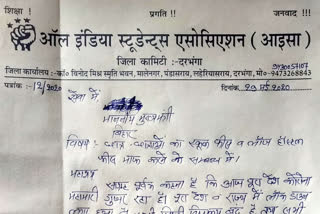 शिक्षा ! प्रगति !! जनवाद !!!
ऑल इंडिया स्टूडेन्ट्स एसोसिएशन ( आइसा )
जिला कमिटी :-दरभंगा
जिला कार्यालय :-कॉ० विनोद मिश्र स्मृति भवन, मालेनगर, पंडासराय, लहेरियासराय, दरभंगा, मो०-9473268843
पत्रांक:-12/2020 दिनांक 29 मई 2020
सेवा में
माननीय मुख्यमंत्री
बिहार
विषय :- छात्र - छात्राओं का स्कूल फीस व लॉज हॉस्टल
फीस माफ करने के सम्बन्ध में।
महाशय
सादर पूर्वक कहना है कि आज पूरा देश कोरोना
महामारी गुजर रहा है। पूरा देश व राज्य में लॉक डाउन